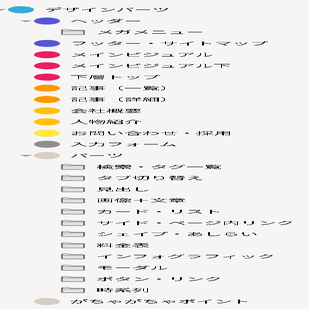 デザインパーツ
ヘッダー
メガメニュー
フッター・サイトマップ
メインビジュアル
メインビジュアル下
下層トップ
記事（一覧）
記事（詳細）
会社概要
人物紹介
お問い合わせ・採用
入力フォーム
パーツ
検索・タグ一覧
タブ切り替え
見出し
画像＋文章
カード・リスト
サイド・ページ内リンク
シェイプ・あしらい
料金表
インフォグラフィック
モーダル
ボタン・リンク
時系列
がちゃがちゃポイント